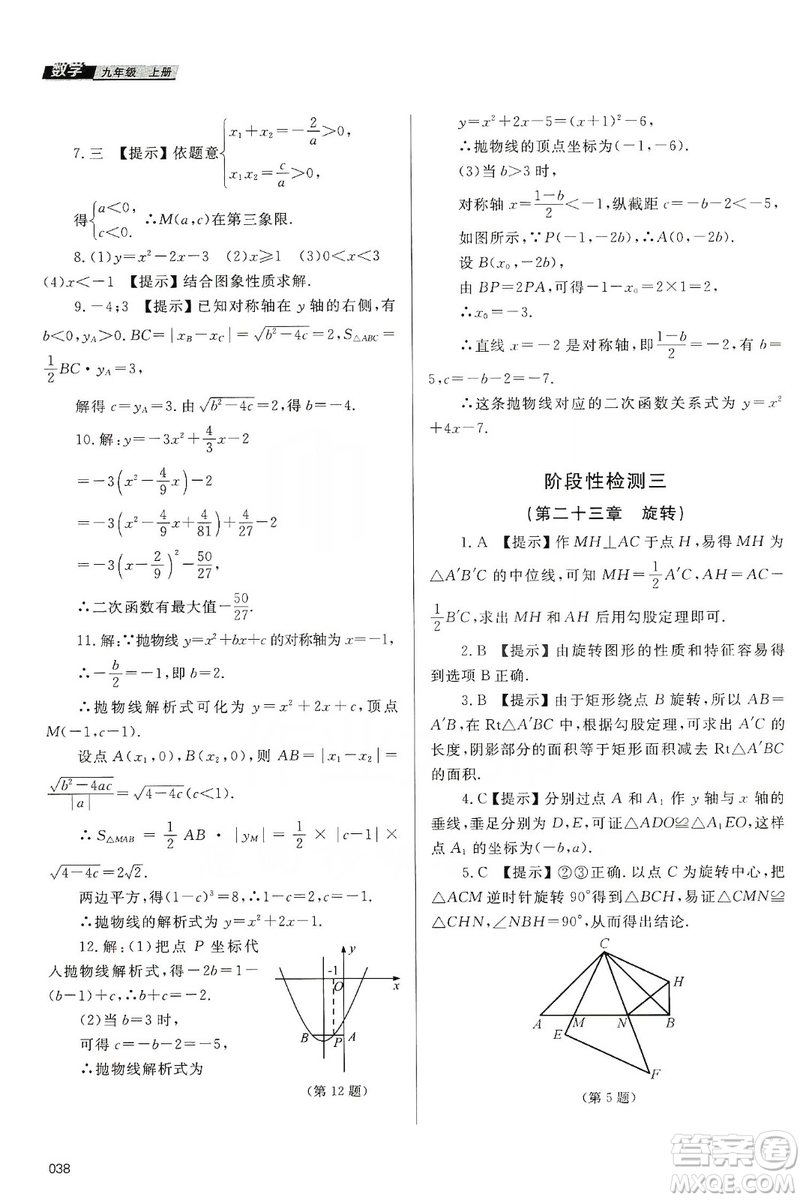 数学 九年级 上册
7.三 【提示】依题意{x₁+x₂=-2/a>0, x₁x₂=c/a>0,
得{a<0, c<0. ∴M(a,c)在第三象限.
8.(1)y=x²-2x-3 (2)x≥1 (3)0<x<2
(4)x<-1 【提示】结合图象性质求解.
9.-4;3 【提示】已知对称轴在 y 轴的右侧,有
b<0,y_A>0.BC=|x_B-x_C|=√(b²-4c)=2,S△ABC=
1/2 BC·y_A=3,
解得 c=y_A=3.由√(b²-4c)=2,得 b=-4.
10.解:y=-3x²+4/3 x-2
=-3(x²-4/9 x)-2
=-3(x²-4/9 x+4/81)+4/27-2
=-3(x-2/9)²-50/27,
∴二次函数有最大值-50/27.
11.解:∵抛物线 y=x²+bx+c 的对称轴为 x=-1,
∴-b/2=-1,即 b=2.
∴抛物线解析式可化为 y=x²+2x+c,顶点
M(-1,c-1).
设点 A(x₁,0),B(x₂,0),则 AB=|x₁-x₂|=
√(b²-4ac)/|a|=√(4-4c)(c<1).
∴S△MAB=1/2 AB·|y_M|=1/2×|c-1|×
√(4-4c)=2√2.
两边平方,得(1-c)³=8,解得 c=-1.
∴抛物线的解析式为 y=x²+2x-1.
12.解:(1)把点 P 坐标代
入抛物线解析式,得-2b=1-
(b-1)+c,∴b+c=-2.
(2)当 b=3 时,
可得 c=-b-2=-5,
∴抛物线解析式为
y
-1
O
x
B
P
A
(第 12 题)
y=x²+2x-5=(x+1)²-6.
∴抛物线的顶点坐标为(-1,-6).
(3)当 b>3 时,
对称轴 x=(1-b)/2<-1,纵截距 c=-b-2<-5,
如图所示,∵P(-1,-b),A(0,-b).
设 B(x₀,-b),
由 BP=2PA,可得-1-x₀=2×1=2,
∴x₀=-3.
∴直线 x=(1-b)/2 是对称轴,∴(1-b)/2=-2,b=
5,c=-b-2=-7.
∴这条抛物线对应的二次函数关系式为 y=x²
+4x-7.
阶段性检测三
(第二十三章 旋转)
1.A 【提示】作 MH⊥AC 于点 H,易得 MH 为
△A′B′C 的中位线,可知 MH=1/2 A′C,CH=
1/2 B′C,求出 MH 和 AH 后用勾股定理即可.
2.B 【提示】由旋转图形的性质和特征容易得
到选项 B 正确.
3.B 【提示】由于矩形绕点 B 旋转,所以 AB=
A′B,在 Rt△A′BC 中,根据勾股定理,可求出 A′C 的
长度,阴影部分的面积等于矩形面积减去 Rt△A′BC
的面积.
4.C【提示】分别过点 A 和 A₁ 作 y 轴与 x 轴的
垂线,垂足分别为 D,E,可证△ADO≌△A₁EO,这样
点 A₁ 的坐标为(-b,a).
5.C 【提示】②③正确.以点 C 为旋转中心,把
△ACM 逆时针旋转 90°得到△BCH,易证△CMN≌
△CHN,∠NBH=90°,从而得出结论.
C
H
A
M
N
B
E
F
(第 5 题)
038
答案圈
MXQE.COM